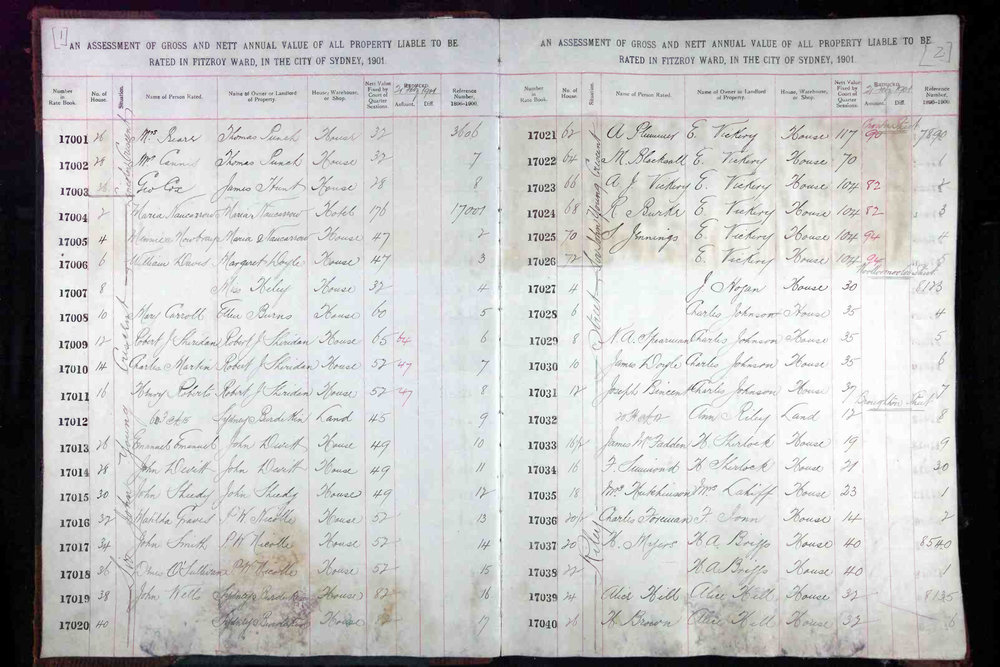 [1]
AN ASSESSMENT OF GROSS AND NETT ANNUAL VALUE OF ALL PROPERTY LIABLE TO BE
RATED IN FITZROY WARD, IN THE CITY OF SYDNEY, 1901.
Number in Rate Book. No. of House. Situation. Name of Person Rated. Name of Owner or Landlord of Property. House, Warehouse, or Shop. Nett Value Fixed by Court of Quarter Sessions. REDUCED. Amount. Diff. Reference Number, 1896-1900.
17001 26 Mrs Thomas Punch House 32 3606
17002 28 Mrs Thomas Punch House 32 7
17003 Geo Cox James Hunt House 28 8
17004 2 Maria Nancarrow Maria Nancarrow Hotel 176 17001
17005 4 Maria Nancarrow House 47 2
17006 6 William Davis Margaret Doyle House 47 3
17007 8 Miss Riley House 32 4
17008 10 Mary Carroll Ellen Burns House 60 5
17009 12 Robert J Sheridan Robert J Sheridan House 65 54 6
17010 14 Charles Martin Robert J Sheridan House 52 47 7
17011 16 Henry Roberts Robert J Sheridan House 52 47 8
17012 Sydney Burdekin Land 45 9
17013 26 Emanuel Emanuel John Dewitt House 49 10
17014 28 John Dewitt John Dewitt House 49 11
17015 30 John Sheedy John Sheedy House 49 12
17016 32 Matilda Graves P. W. Nicolle House 52 13
17017 34 John Smith P. W. Nicolle House 52 14
17018 36 Denis O'Sullivan P. W. Nicolle House 52 15
17019 38 John Wells Sydney Burdekin House 82 16
17020 40 Sydney Burdekin House 17
Sir John Young Crescent
[2]
AN ASSESSMENT OF GROSS AND NETT ANNUAL VALUE OF ALL PROPERTY LIABLE TO BE
RATED IN FITZROY WARD, IN THE CITY OF SYDNEY, 1901.
Number in Rate Book. No. of House. Situation. Name of Person Rated. Name of Owner or Landlord of Property. House, Warehouse, or Shop. Nett Value Fixed by Court of Quarter Sessions. REDUCED. Amount. Diff. Reference Number, 1896-1900.
17021 62 A Plummer E. Vickery House 117 90 7890
17022 64 M. Blacksall E. Vickery House 70 1
17023 66 A J Vickery E. Vickery House 104 82
17024 68 R Burke E. Vickery House 104 82 3
17025 70 S Jennings E. Vickery House 104 94 4
17026 72 E. Vickery House 104 94 5
Woolloomooloo Street
17027 4 J Hogan House 30 8123
17028 6 Charles Johnson House 35 4
17029 8 N. A. Spearman Charles Johnson House 35 5
17030 10 James Doyle Charles Johnson House 35 6
17031 12 Joseph Bincent Charles Johnson House 37 7
Broughton Street
17032 Ann Riley Land 12 8
17033 16½ James McFadden H Sherlock House 19 9
17034 16 F Summond H Sherlock House 21 30
17035 18 Mrs Hutchinson Mrs Lahiff House 23 1
17036 20½ Charles Foreman F. Tonn House 14 2
17037 20 H. Myers H A Briggs House 40 8540
17038 22 H A Briggs House 40 1
17039 24 Alice Hill Alice Hill House 32 8135
17040 26 H Brown Alice Hill House 32 6
Sir John Young Crescent
Riley Street